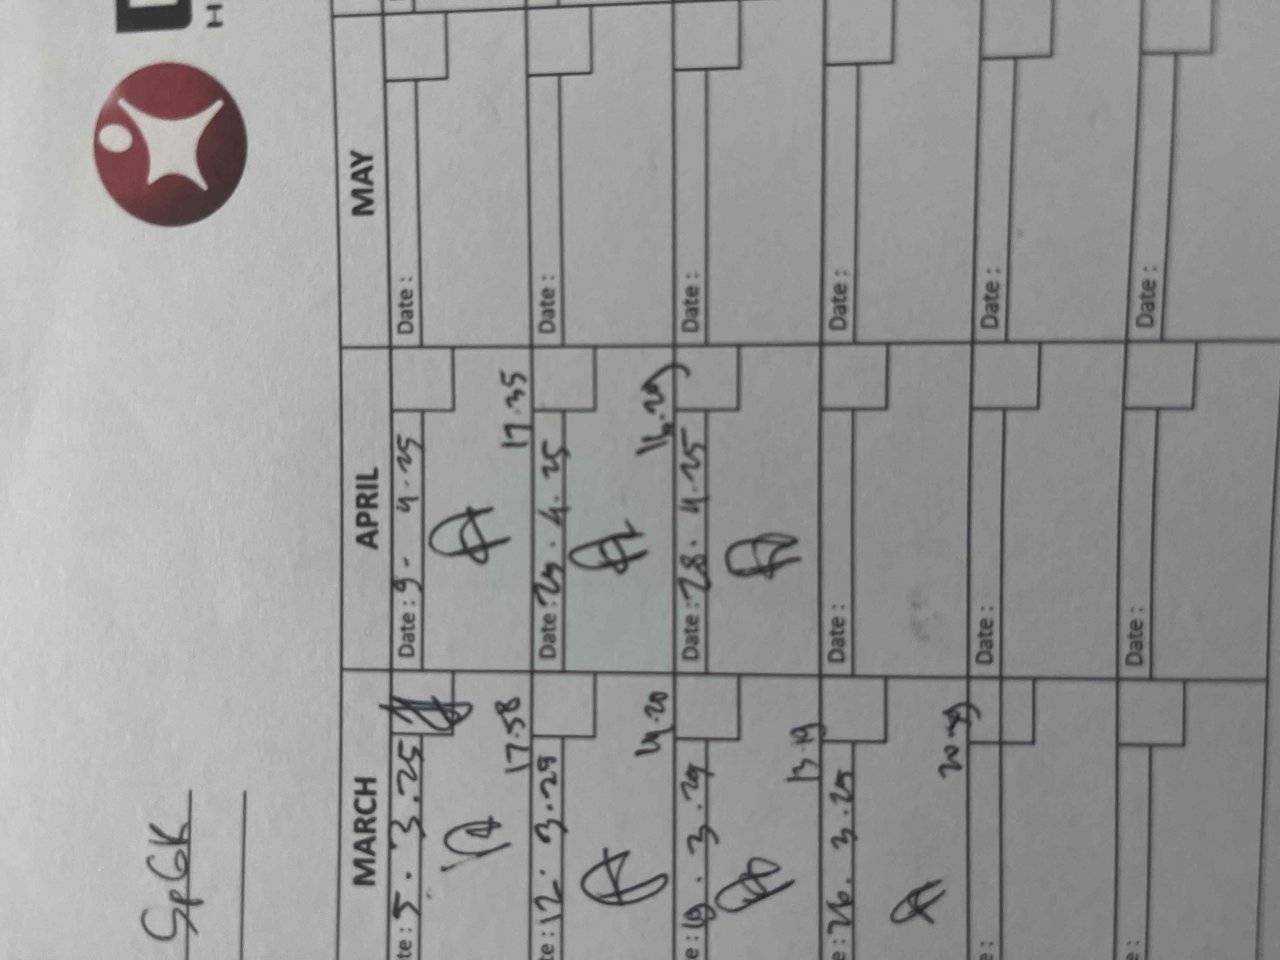 H
SpGK
MARCH APRIL MAY
te : 5 . 3.25 Date : 9 - 4.25 Date :
17.58 17.35
te : 12 . 3.25 Date : 23 . 4.25 Date :
14.20
e : 19 . 3.25 Date : 28 . 4.25 Date :
13.19
e : 26 . 3.25 Date : Date :
e : Date : Date :
e : Date : Date :